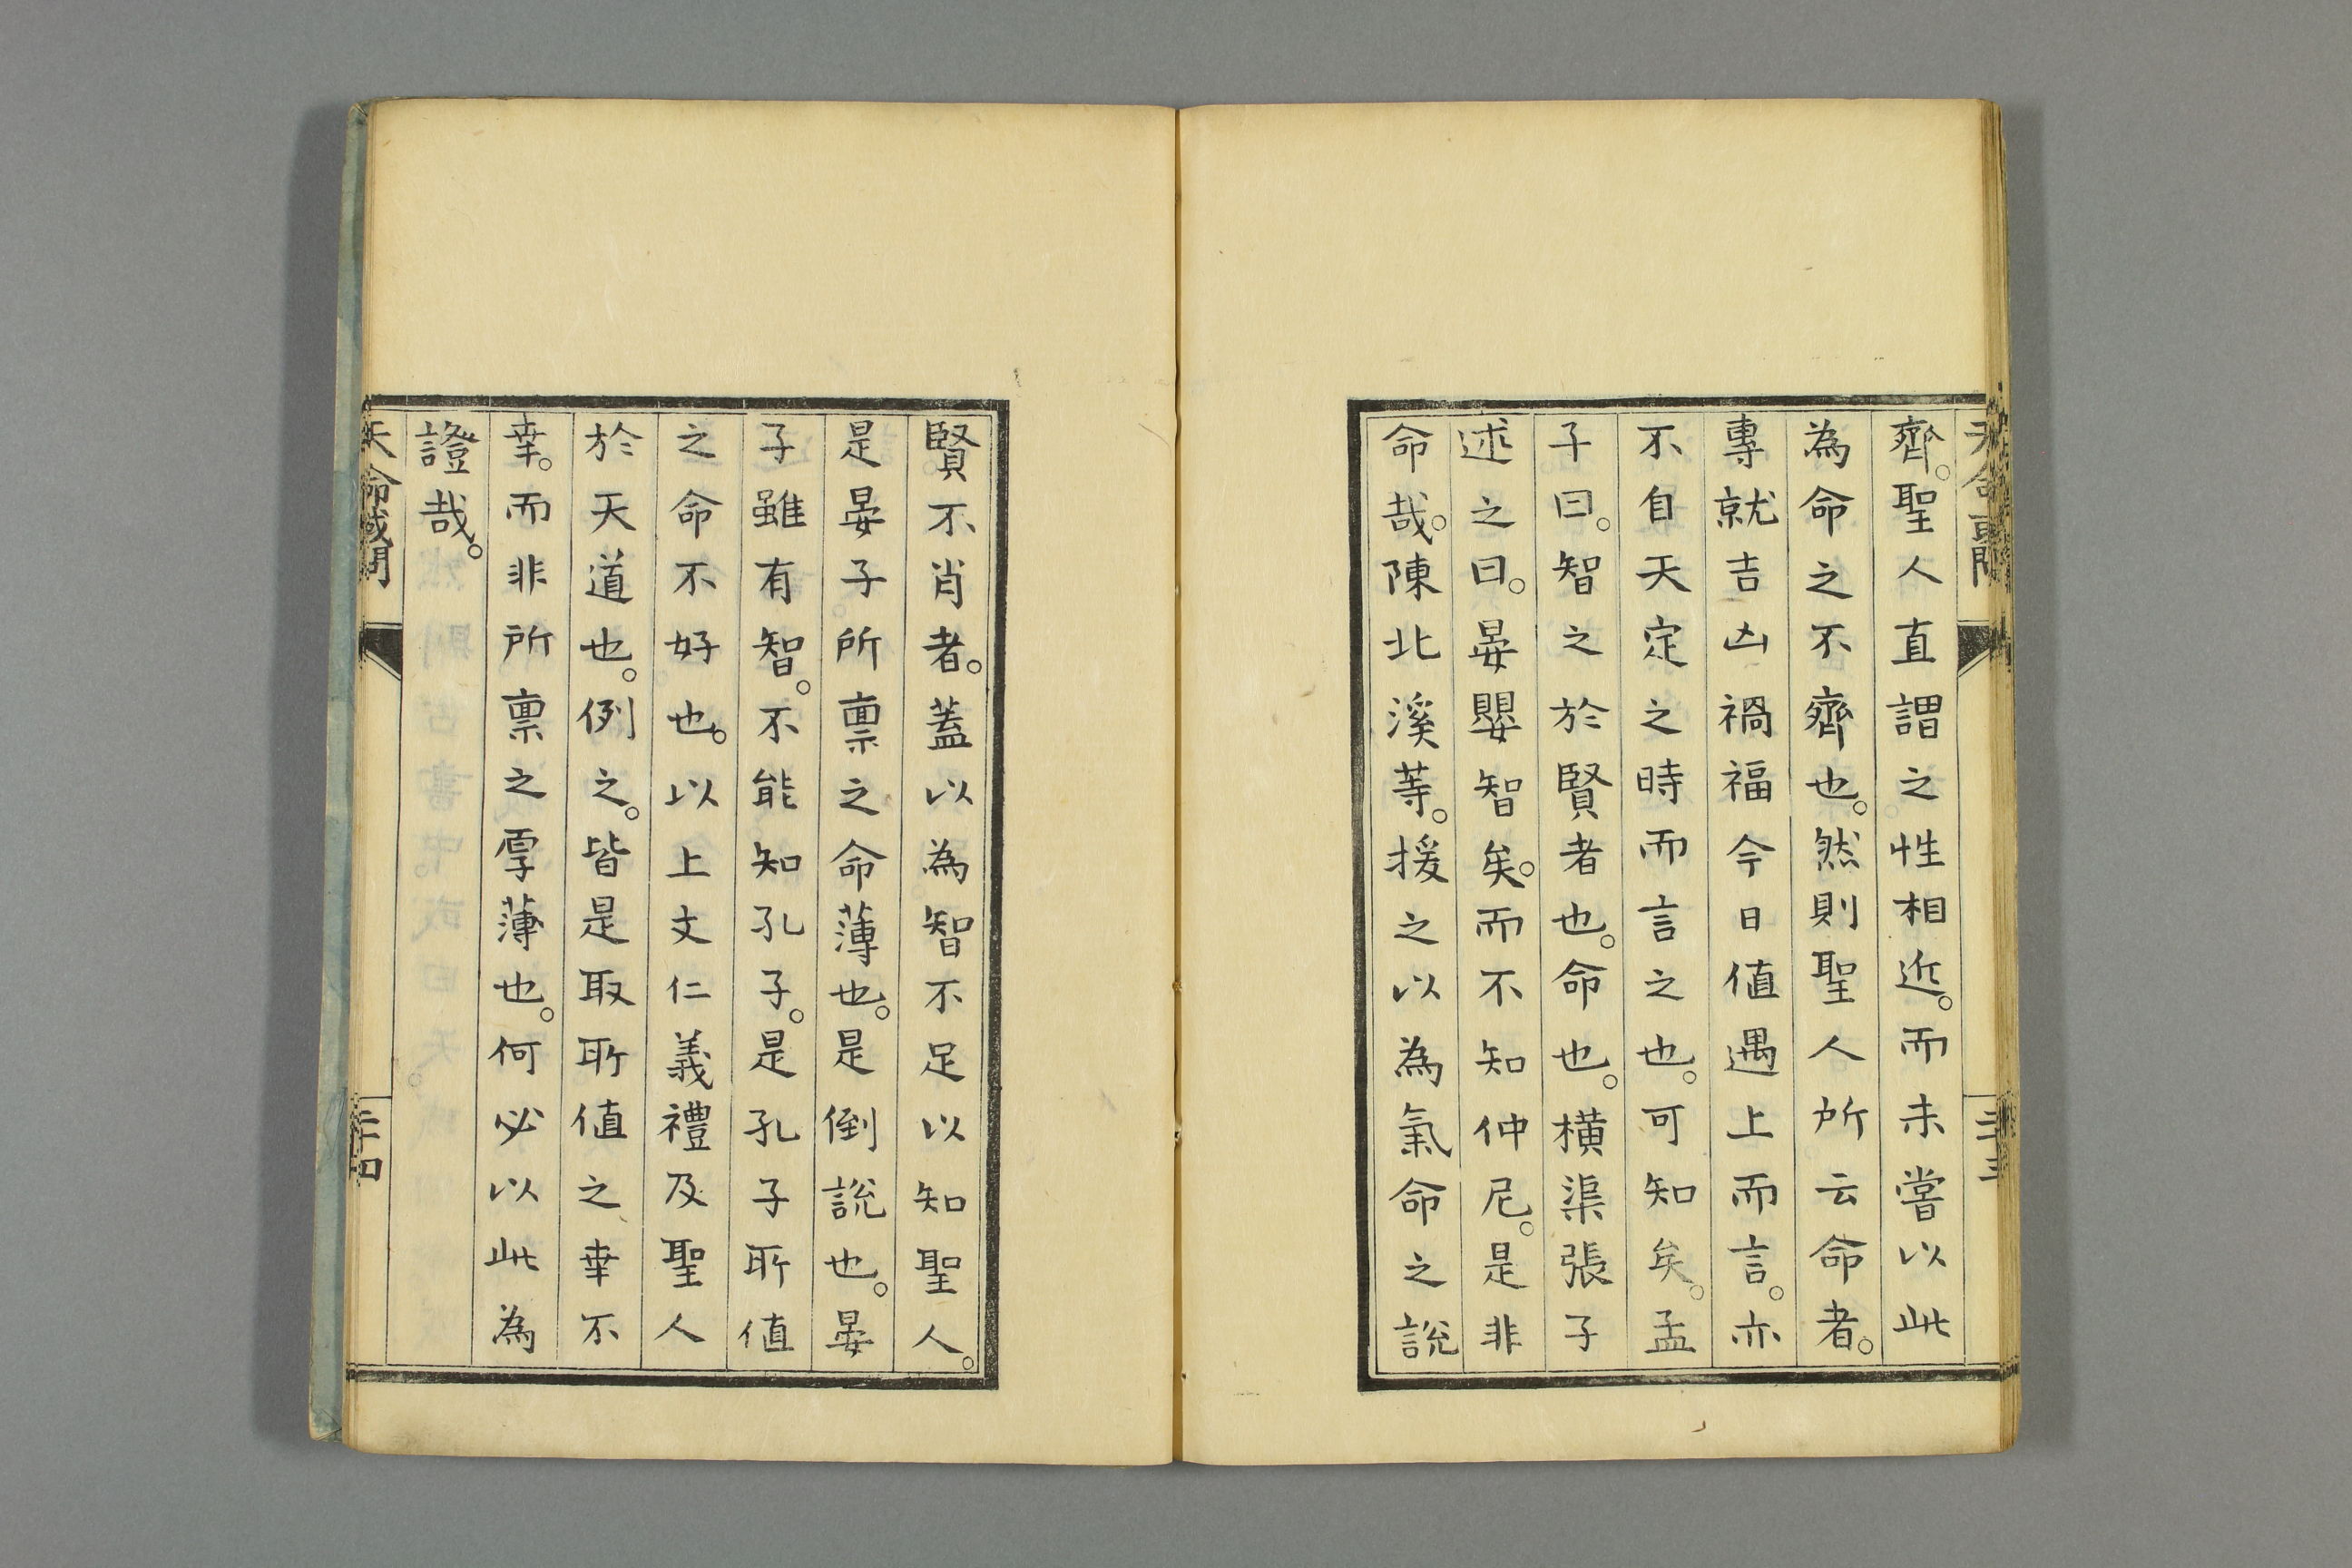 齊。聖人直謂之性相近。而未嘗以此
為命之不齊也。然則聖人所云命者。
專就吉凶禍福今日值遇上而言。亦
不自天定之時而言之也。可知矣。孟
子曰。智之於賢者也。命也。橫渠張子
述之曰。晏嬰智矣。而不知仲尼。是非
命哉。陳北溪等。援之以為氣命之說
賢不肖者。蓋以為智不足以知聖人。
是晏子所稟之命薄也。是倒說也。晏
子雖有智。不能知孔子。是孔子所值
之命不好也。以上文仁義禮及聖人
於天道也。例之。皆是取所值之幸不
幸。而非所稟之厚薄也。何必以此為
證哉。
天命或問
二十四